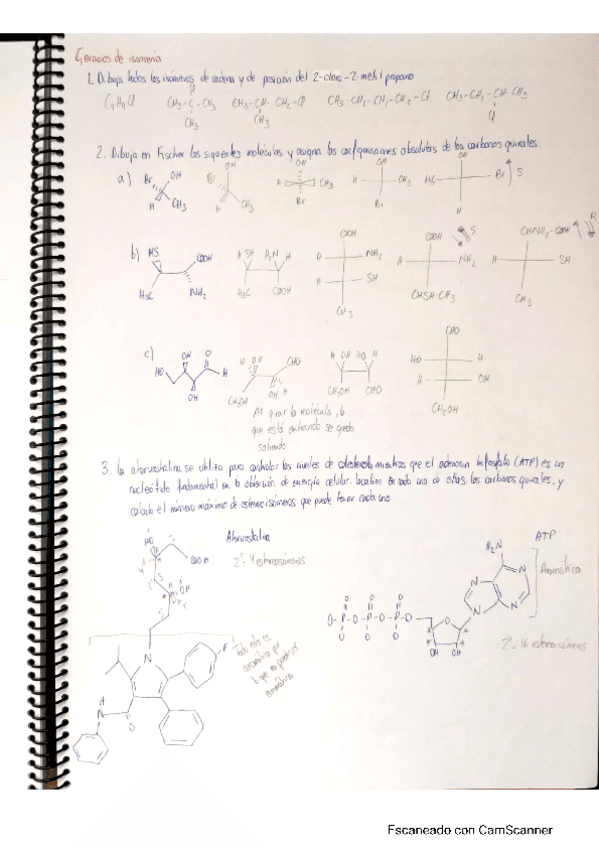 Ejercicios de isomería
1. Dibuja todos los isómeros de cadena y de posición del 2-cloro-2-metil propano
C₄H₉Cl
Cl
CH₃-C-CH₃ CH₃-CH-CH₂-Cl CH₃-CH₂-CH₂-CH₂-Cl CH₃-CH₂-CH-CH₃
CH₃ CH₃ Cl
2. Dibuja en Fischer las siguientes moléculas y asigna las configuraciones absolutas de los carbonos quirales:
a) Br OH H CH₃
OH CH₃
OH H CH₃ Br
OH H CH₃ Br
OH H₃C Br H S
b) HS COOH H₃C NH₂
H SH H₂N H H₃C COOH
COOH H NH₂ H SH CH₃
COOH H NH₂ CHSH-CH₃ S
CHNH₂-COOH H SH CH₃ R
c) HO OH O H OH
CHO CH₂OH
H OH HO H CH₂OH CHO
CHO HO H H OH CH₂OH
Al girar la molécula, lo
que está entrando se queda
saliendo
3. La atorvastatina se utiliza para controlar los niveles de colesterol, mientras que el adenosín trifosfato (ATP) es un
nucleótido fundamental en la obtención de energía celular. Localiza en cada una de ellas los carbonos quirales, y
calcula el número máximo de estereoisómeros que puede tener cada uno
Atorvastatina
HO COOH
2²=4 estereoisómeros
OH
Todo esto es
aromático por
lo que no
aromático
N F N H O
ATP
H₂N
Aromática
N N N N
O O O
O-P-O-P-O-P-O O
O O O
OH OH
2⁴=16 estereoisómeros
Escaneado con CamScanner